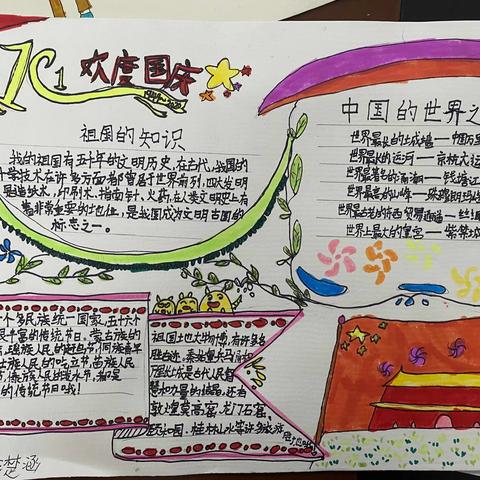 10.1 欢度国庆
祖国的知识
我的祖国有五千年的文明历史,在古代,我国的
科学技术在许多方面都曾居于世界前列,四大发明
是造纸术,印刷术,指南针,火药,在人类文明史上有
着非常重要的地位,是我国成为文明古国的
标志之一。
中国的世界之
世界最长的城墙——中国万里
世界最长的运河——京杭大运
世界最著名的涌潮——钱塘江
世界最高的山峰——珠穆朗玛
世界最古老的东西贸易通道——丝绸
世界上最大的皇宫——紫禁城
个多民族统一国家,五十六个
很丰富的传统节日。蒙古族的
族人民的
族人民的吃立节,
傣族人民的泼水节,都是
的传统节日哦!
祖国地大物博,有许多名
胜古迹,秦始皇兵马俑
万里长城是古代人民智
慧和力量的结晶,还有
敦煌莫高窟,龙门石窟,
颐和园,桂林山水等许多旅游
楚涵